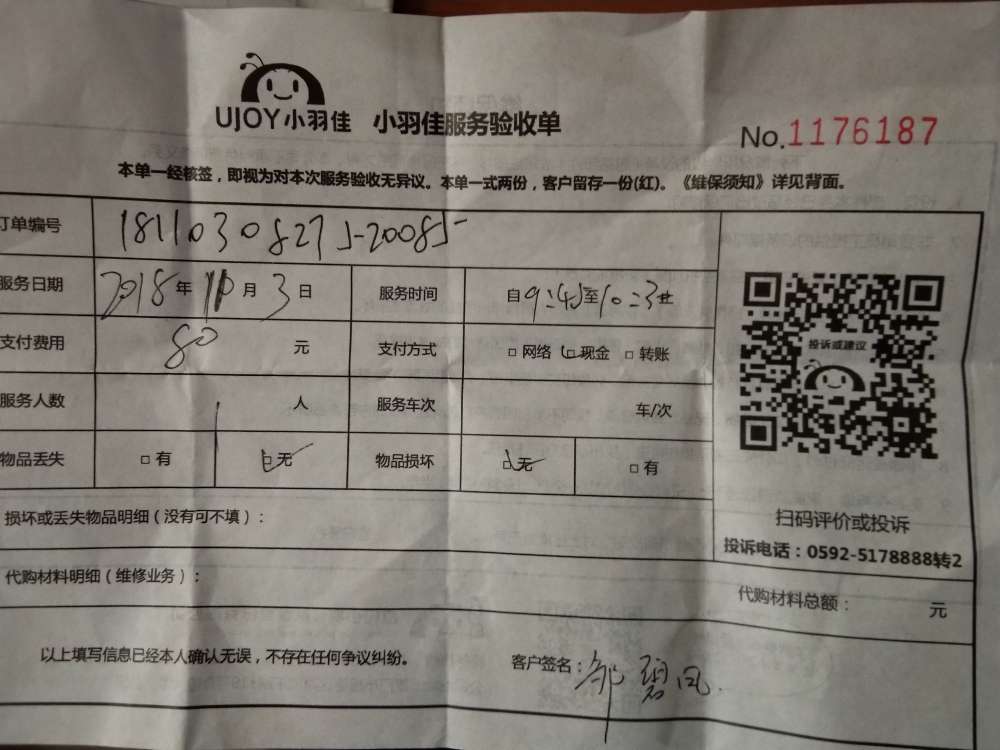 UJOY小羽佳 小羽佳服务验收单
No.1176187
本单一经核签，即视为对本次服务验收无异议。本单一式两份，客户留存一份(红)。《维保须知》详见背面。
订单编号 18110308275-20085
服务日期 2018年11月3日 服务时间 自9:45至10:3
支付费用 80元 支付方式 □网络 □现金 □转账
投诉或建议
服务人数 1人 服务车次 车/次
物品丢失 □有 □无 物品损坏 □无 □有
损坏或丢失物品明细（没有可不填）：
扫码评价或投诉
投诉电话：0592-5178888转2
代购材料明细（维修业务）：
代购材料总额： 元
以上填写信息已经本人确认无误，不存在任何争议纠纷。 客户签名：邹碧凤